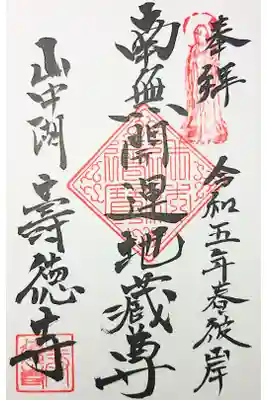 奉拝
令和五年春彼岸
南無開運地蔵尊
山中閻 壽德寺